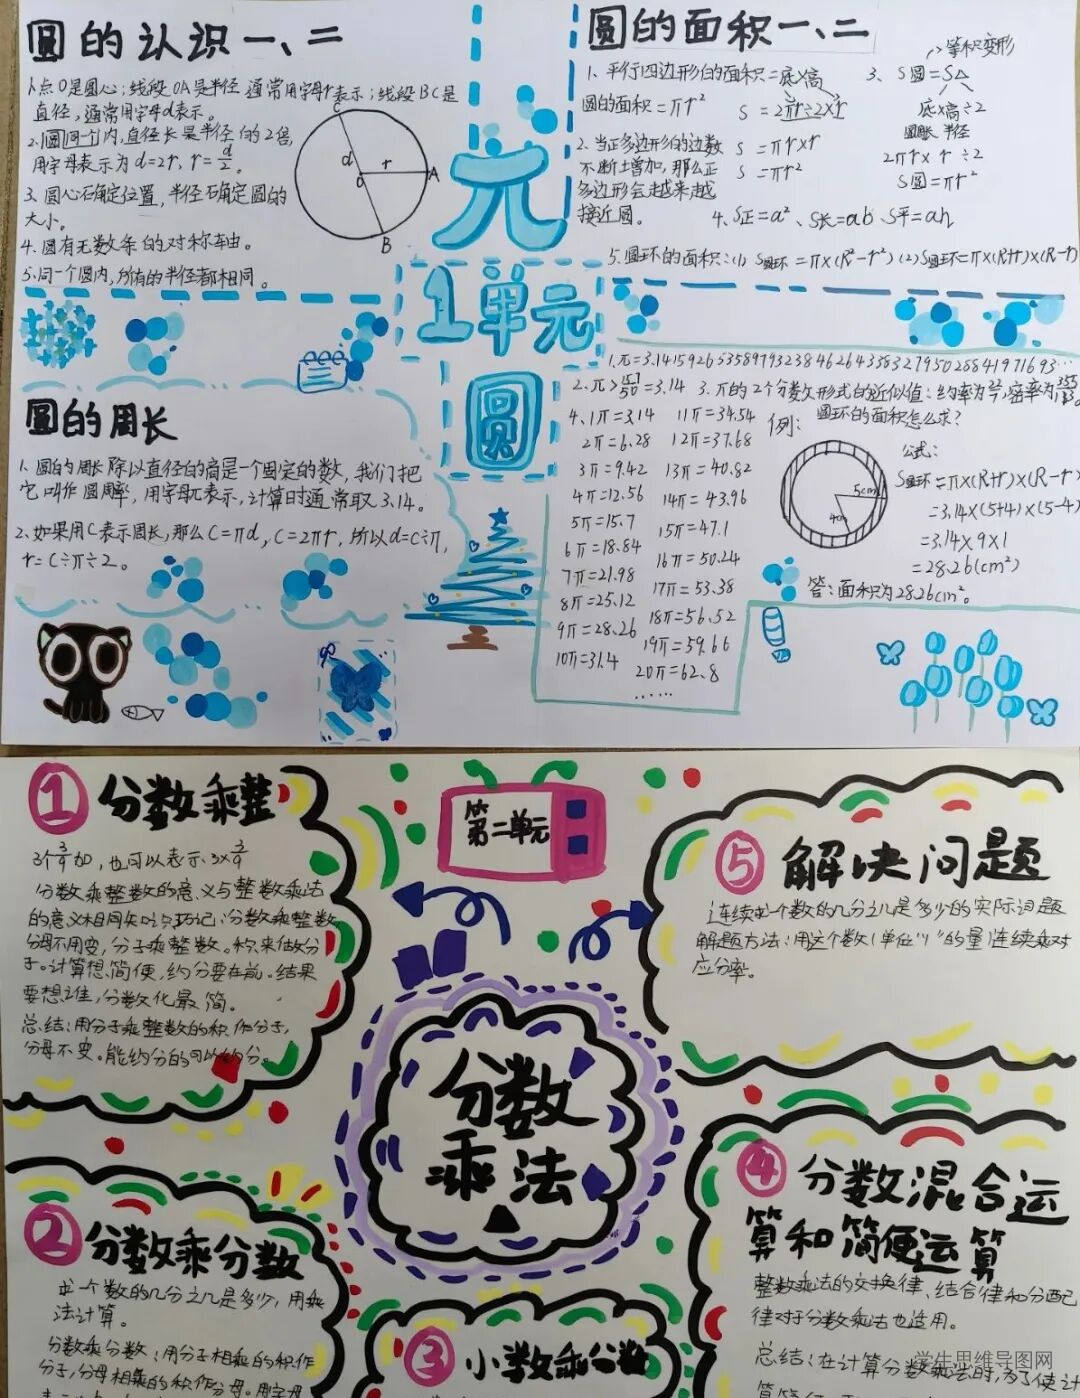 圆的认识一、二
1.点O是圆心;线段OA是半径 通常用字母r表示;线段BC是
直径,通常用字母d表示。
2.同一个圆内,直径长是半径的2倍,
用字母表示为d=2r, r=d/2。
3.圆心确定位置,半径确定圆的
大小。
4.圆有无数条的对称轴。
5.同一个圆内,所有的半径都相同。
C
d
r
O
A
B
元
1单元
圆
圆的面积一、二
1、平行四边形的面积=底×高
圆的面积=πr²
S=2πr÷2×r
S=πr×r
S=πr²
2.当正多边形的边数
不断增加,那么正
多边形会越来越
接近圆。
等积变形
3、S圆=S△
底×高÷2
半径
2πr×r÷2
S圆=πr²
4、S正=a²、S长=ab、S平=ah
5.圆环的面积:(1)S圆环=π×(R²-r²) (2)S圆环=π×(R+r)×(R-r)
圆的周长
1.圆的周长除以直径的商是一个固定的数,我们把
它叫作圆周率,用字母π表示,计算时通常取3.14。
2.如果用C表示周长,那么C=πd,C=2πr,所以d=C÷π,
r=C÷π÷2。
1.π=3.1415926535897932384626433832795028841971693…
2.π>157/50=3.14
3.π的2个分数形式的近似值:约率为22/7,密率为355/113。
4.1π=3.14
2π=6.28
3π=9.42
4π=12.56
5π=15.7
6π=18.84
7π=21.98
8π=25.12
9π=28.26
10π=31.4
11π=34.54
12π=37.68
13π=40.82
14π=43.96
15π=47.1
16π=50.24
17π=53.38
18π=56.52
19π=59.66
20π=62.8
……
例:
圆环的面积怎么求?
5cm
4cm
公式:
S圆环=π×(R+r)×(R-r)
=3.14×(5+4)×(5-4)
=3.14×9×1
=28.26(cm²)
答:面积为28.26cm²。
① 分数乘整
3个3/4加,也可以表示3×3/4
分数乘整数的意义与整数乘法
的意义相同 知识巧记:分数乘整数
分母不用变,分子乘整数。积来做分
子。计算想简便,约分要在前。结果
要想准,分数化最简。
总结:用分子乘整数的积作分子,
分母不变。能约分的可以约分。
第二单元
分数
乘法
⑤ 解决问题
连续求一个数的几分之几是多少的实际问题
解题方法:用这个数(单位"1"的量)连续乘对
应分率。
② 分数乘分数
求一个数的几分之几是多少,用乘
法计算。
分数乘分数:用分子相乘的积作
分子,分母相乘的积作分母。用字母
③ 小数乘分数
④ 分数混合运
算和简便运算
整数乘法的交换律、结合律和分配
律对于分数乘法也适用。
总结:在计算分数乘法时,为了使计
学生思维导图网